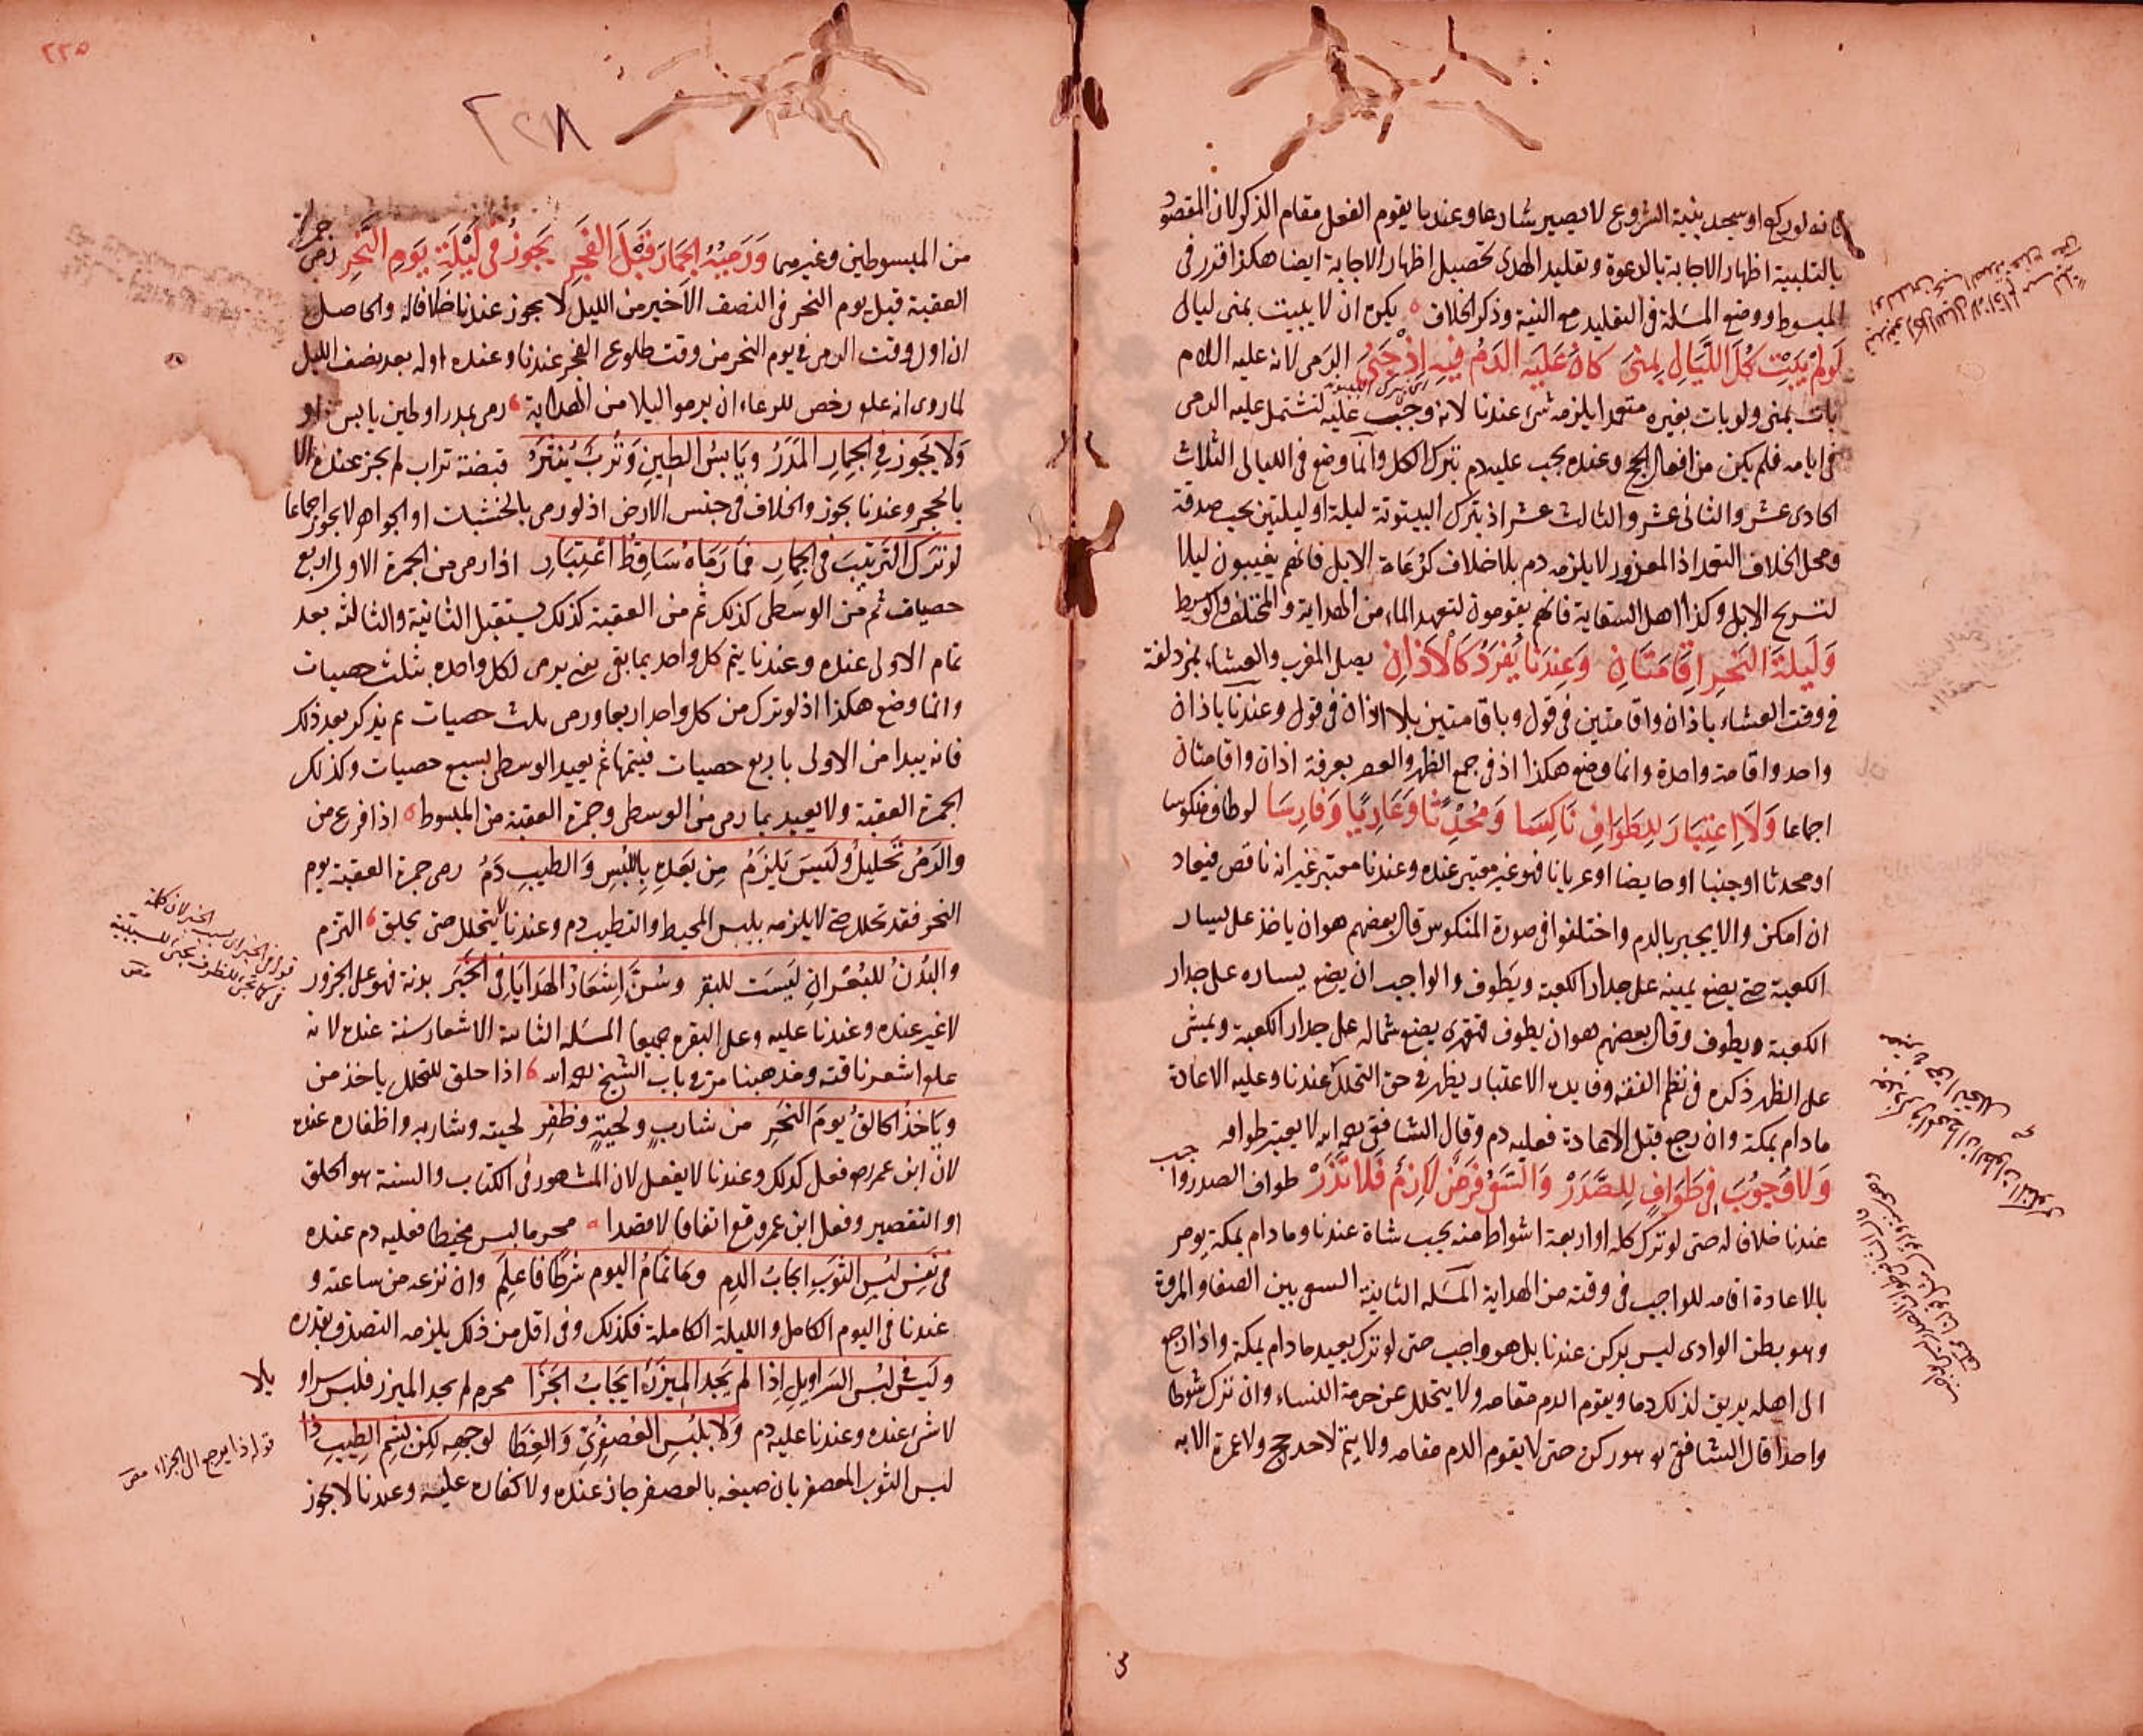 فانه لو ركع او سجد بنية الشروع لا يصير شارعا وعندنا يقوم الفعل مقام الذكر لان المقصود
بالتلبية اظهار الاجابة بالدعوة وتقليد الهدى تحصيل اظهار الاجابة ايضا هكذا قدر فى
المبسوط ووضع المسئلة فى التقليد مع النية وذكر الخلاف يكره ان لا يبيت بمنى ليال
لَولَمْ يَبِتْ كُلَّ اللَّيَالِى بِمِنَى كانَ عَلَيهِ الدَمُ فِيهِ اِذْ جَنَى الرمى لانه عليه السلام
بات بمنى ولو بات بغيره متعمدا لا يلزمه شئ عندنا لانه وجب عليه لتشتمل عليه الرمى
فى ايامه فلم يكن من افعال الحج وعنده يجب عليه دم بترك الكل وانما وضع فى الليالى الثلاث
الحادى عشر والثانى عشر والثالث عشر اذ بترك البيتوتة ليلة او ليلتين يجب صدقة
ومحل الخلاف التعمد اذ المعذور لا يلزمه دم بلا خلاف كرُعَاة الابل فانهم يغيبون ليلا
لتسريح الابل وكذا اهل السقاية فانهم يقومون لتعهد الماء من الهداية والمختلف والوسيط
وَلَيلَةَ النَحرِ اِقَامَتَانِ وَعِندَنا يُفرَدُ كَالْاَذانِ يصلى المغرب والعشاء بمزدلفة
فى وقت العشاء باذان واقامتين فى قول وباقامتين بلا اذان فى قول وعندنا باذان
واحد واقامة واحدة وانما وضع هكذا اذ فى جمع الظهر والعصر بعرفة اذان واقامتان
اجماعا وَلَا اعتِبَارَ لِطَوَافِ نَاكِسَا وَمُحْدِثًا وَعَارِيًا وَفَارِسَا لو طاف منكوسا
او محدثا او جنبا او حايضا او عريانا فهو غير معتبر عنده وعندنا معتبر غير انه ناقص فيعاد
ان امكن والا يجبر بالدم واختلفوا فى صورة المنكوس قال بعضهم هو ان ياخذ على يسار
الكعبة حتى يضع يمينه على جدار الكعبة ويَطوف والواجب ان يضع يساره على جدار
الكعبة ويطوف وقال بعضهم هو ان يطوف قهقرى يضع شماله على جدار الكعبة ويمشى
على الظهر ذكره فى نظم الفقه وفايدة الاعتبار يظهر فى حق التحلل عندنا وعليه الاعادة
مادام بمكة وان رجع قبل الاعادة فعليه دم وقال الشافعى رحمه الله لا يعتبر طوافه
وَلا وُجُوبَ فِى طَوَافٍ لِلصَّدَرْ وَالسَّعْىُ فَرضٌ لَازِمٌ فَلا تَذَرْ طواف الصدر واجب
عندنا خلافا له حتى لو ترك كله او اربعة اشواط منه يجب شاة عندنا ومادام بمكة يومر
بالاعادة اقامة للواجب فى وقته من الهداية المسئله الثانية السعى بين الصفا والمروة
وهو بطن الوادى ليس بركن عندنا بل هو واجب حتى لو ترك يعيد مادام بمكة واذا رجع
الى اهله يريق لذلك دما ويقوم الدم مقامه ولا يتحلل عن حرمة النساء وان ترك شوطا
واحدا قال الشافعى هو ركن حتى لا يقوم الدم مقامه ولا يتم لاحد حج ولا عمرة الا به
٢٢٥
٢٢٨
من المبسوطين وغيرهما وَرَميُهُ الجِمَارَ قَبْلَ الفَجرِ يَجوزُ فى لَيْلَةِ يَومِ النَّحرِ رمى جمرة
العقبة قبل يوم النحر فى النصف الاخير من الليل لا يجوز عندنا خلافا له والحاصل
ان اول وقت الرمى فى يوم النحر من وقت طلوع الفجر عندنا وعنده اوله بعد نصف الليل
لما روى انه علم رخص للرعاء ان يرموا ليلا من الهداية رمى بمدر او طين يابس او
وَلا يَجوز فِى الجِمارِ المَدَرُ ويَابِسُ الطِينِ وَتُربٌ يُنثَرُ قبضة تراب لم يجز عنده الا
بالحجر وعندنا يجوز والخلاف فى جنس الارض اذ لو رمى بالخشبات او الجواهر لا يجوز اجماعا
لو تَرَكَ التَرتِيبَ فى الجِمارِ فمَا رَمَاهُ سَاقِطُ اعْتِبَارِ اذا رمى من الجمرة الاولى اربع
حصيات ثم من الوسطى كذلك ثم من العقبة كذلك يستقبل الثانية والثالثة بعد
تمام الاولى عنده وعندنا يتم كل واحد بما بقى يعنى يرمى لكل واحده بثلث حصيات
وانما وضع هكذا اذ لو ترك من كل واحد اربعا ورمى بثلث حصيات ثم يذكر بعد ذلك
فانه يبدا من الاولى باربع حصيات فيتمها ثم يعيد الوسطى بسبع حصيات وكذلك
الجمرة العقبة ولا يعيد بما رمى من الوسطى وجمرة العقبة من المبسوط اذا فرغ من
والرَمىُ تَحليلٌ ولَيسَ يَلزَمُ مِن بَعدِهِ بِاللُبسِ وَالطيبِ دَمُ رمى جمرة العقبة يوم
النحر فقد تحلل حتى لا يلزمه بلبس المخيط والتطيب دم وعندنا لا يتحلل حتى يحلق التزم
والبُدْنُ للبُعْرانِ لَيسَت للبقر وسُنَّ اِشعَارُ الهَدَايَا فى الخَبَر بدنة فهو على الجزور
لا غير عنده وعندنا عليه وعلى البقره جميعا المسئله الثانية الاشعار سنة عنده لانه
علم اشعر ناقته ومذهبنا مر فى باب الشيخ رحمه الله اذا حلق للتحلل ياخذ من
ويَاخُذُ الحالقُ يومَ النَحرِ من شاربٍ ولحيةٍ وظفرِ لحيته وشاربه واظفاره عنده
لان ابن عمر رضه فعل كذلك وعندنا لا يفعل لان المشهور فى الكتاب والسنة هو الحلق
او التقصير وفعل ابن عمر وقع اتفاقا لا قصدا محرم لبس مخيطا فعليه دم عنده
فى نَفسِ لُبسِ الثوَبِ ايجابُ الدمِ وما تَمَامُ اليوم شرطًا فاعلَمِ وان نزعه من ساعته و
عندنا فى اليوم الكامل والليلة الكاملة فكذلك وفى اقل من ذلك يلزمه التصدق بقدره
وليسَ فى لُبسِ السَراويلِ اِذا لم يَجِدِ المِيزَرَ ايجَابُ الجَزَا محرم لم يجد الميزر فلبس سراويلا
لا شئ عنده وعندنا عليه دم وَلا بلُبسِ العُصفُرِىِّ وَالغِطَا لوجهِهِ لكِن لشمِّ الطِيبِ ذا
لبس الثوب المعصفر بان صبغه بالعصفر جاز عنده ولا كفاره عليه وعندنا لا يجوز
قوله ذا يرجع الى الجزاء